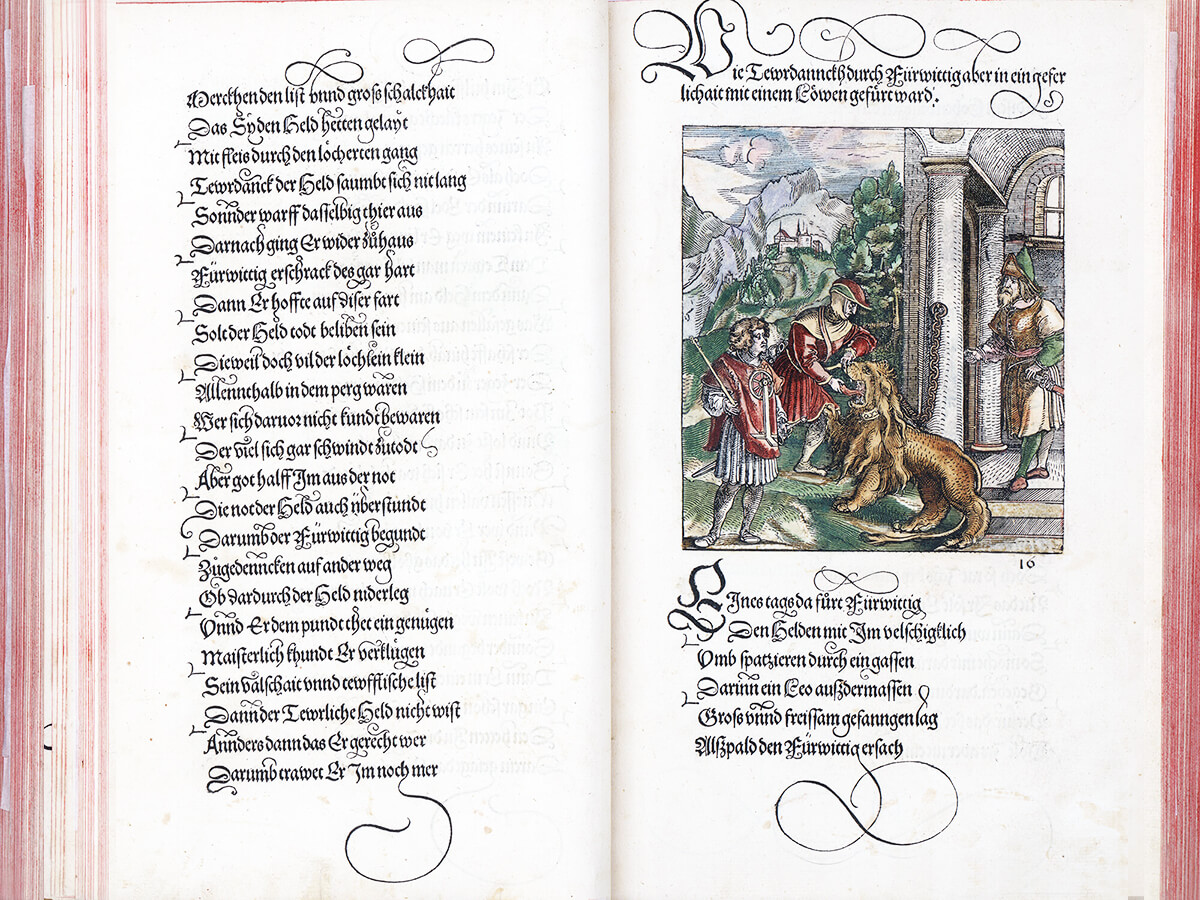 Merckhen den list vnnd gross schalckhait
Das Syden Held hetten gelayt
Mit fleis durch den löcherten gang
Tewrdanck der Held saumbt sich nit lang
Sonnder warff dasselbig thier aus
Darnach ging Er wider zůhaus
Fürwittig erschrack des gar hart
Dann Er hoffte auf diser fart
Solt der Held todt beliben sein
Dieweil doch vil der löchlein klein
Allennthalb in dem perg waren
Wer sich daruor nicht kundt bewaren
Der viel sich gar schwindt zutodt
Aber got halff Im aus der not
Die not der Held auch yberstundt
Darumb der Fürwittig begundt
Zůgedenncken auf ander weg
Ob dardurch der Held niderleg
Vnnd Er dem pundt thet ein genügen
Maisterlich khundt Er verklügen
Sein valschait vnnd tewfflische list
Dann der Tewrliche Held nicht wist
Annders dann das Er gerecht wer
Darumb trawet Er Im noch mer
Wie Tewrdannckh durch Fürwittig aber in ein gefer
lichait mit einem Löwen gefürt ward.
16
Eines tags da fürt Fürwittig
Den Helden mit Im velschigklich
Vmb spatzieren durch ein gassen
Darinn ein Leo außdermassen
Gross vnnd freissam gefanngen lag
Alßpald den Fürwittig ersach